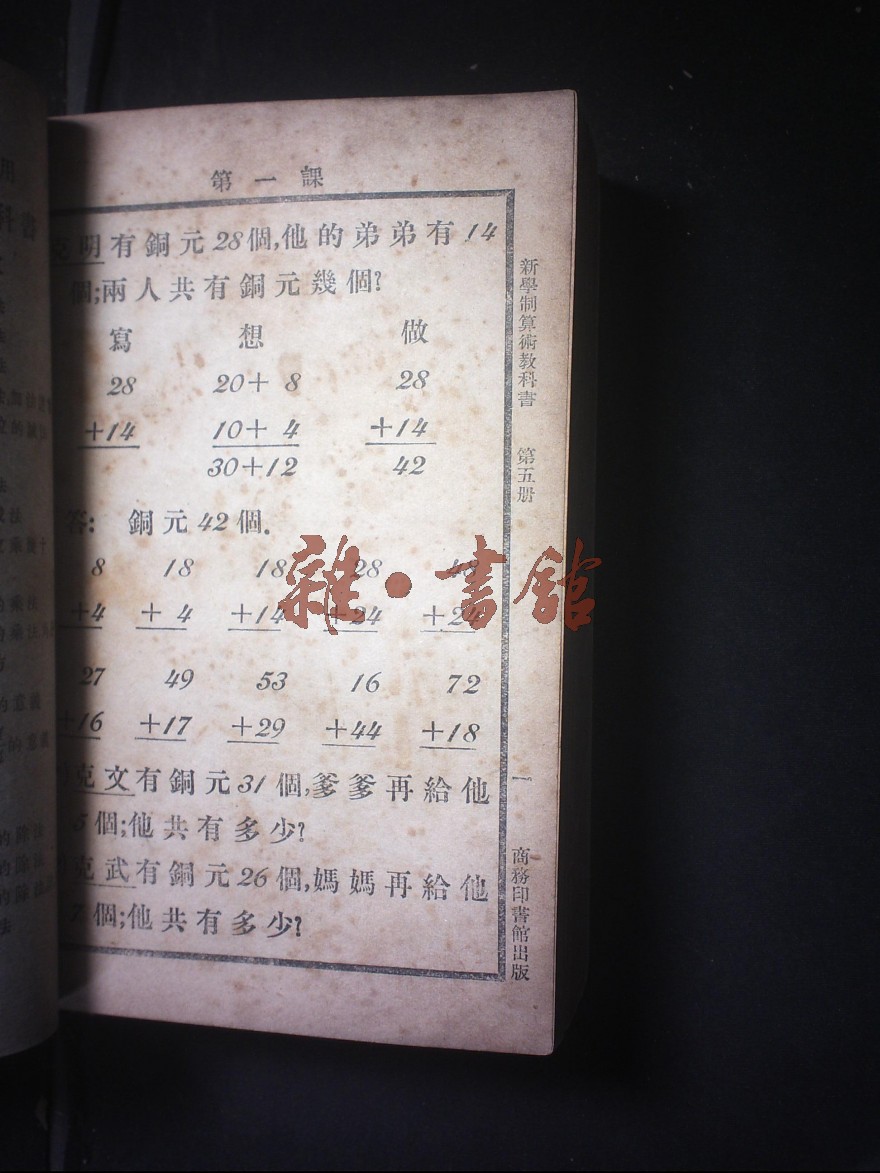 第一課
克明有銅元28個,他的弟弟有14
個;兩人共有銅元幾個?
寫 想 做
28 20+ 8 28
+14 10+ 4 +14
30+12 42
答: 銅元42個.
8 18 18 28 48
+4 + 4 +14 +24 +24
27 49 53 16 72
+16 +17 +29 +44 +18
克文有銅元31個,爹爹再給他
個;他共有多少?
克武有銅元26個,媽媽再給他
個;他共有多少?
新學制算術教科書 第五册 一 商務印書館出版
雜·書館
科書